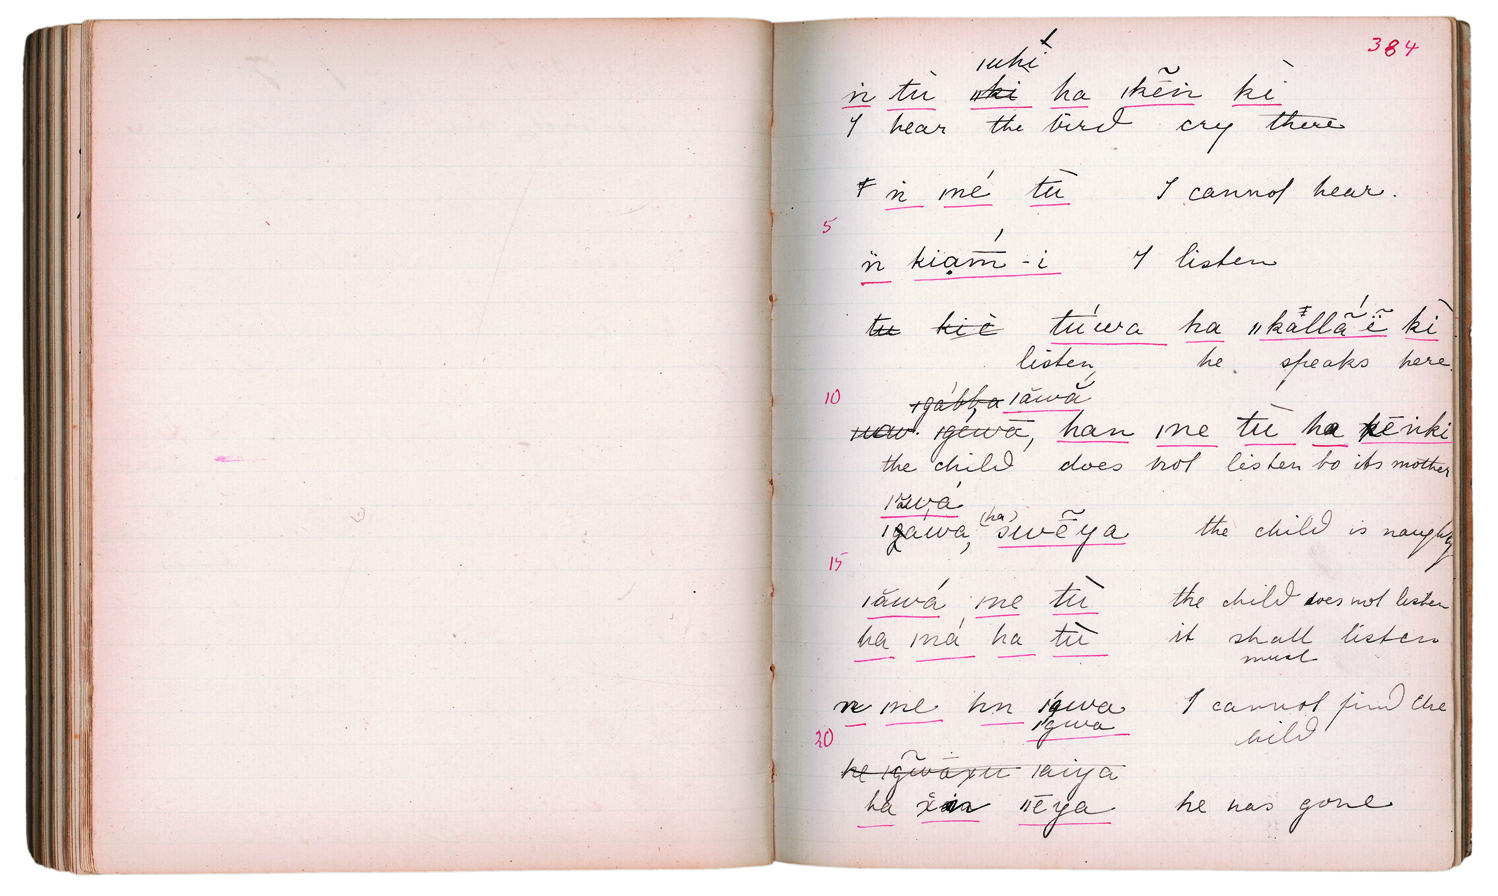 384
ıuhi
ṅ tù ǁki ha ıkẽṅ kì
I hear the bird cry there
ṅ ıné tù I cannot hear.
5
ṅ kiạm̄-i I listen
tu kiè túwa ha ǁkãllã́ẽ kì
listen, he speaks here.
10
ıgábba ıāwá
ıgéwā, han ıne tù ha kēṅki
the child does not listen to its mother
ıāwá
ıgáwa, (ha) swẽya the child is naughty
15
ıāwá ıne tù the child does not listen
ha ıná ha tù it shall listen
must
ṅ ıne hn ıgwa I cannot find the
20
ıgwa child
he ıgwāxu ıaiya
ha xin ǁēya he has gone